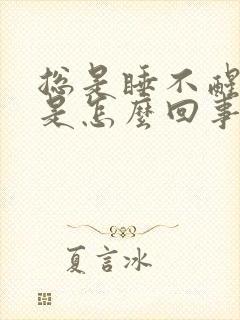 总是睡不醒
是怎麼回事
夏言冰